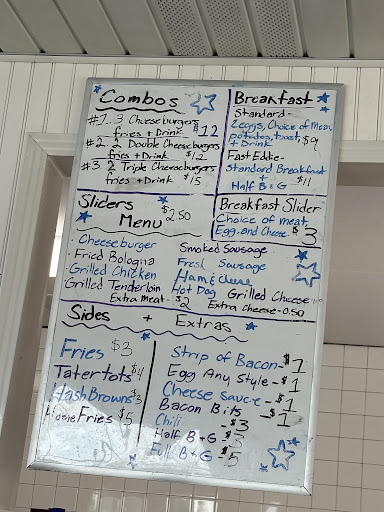 Combos
#1. 3 Cheeseburgers
fries + Drink $12
#2. 2 Double Cheeseburgers
fries + Drink $12
#3. 2 Triple Cheeseburgers
fries + Drink $15
Breakfast
Standard -
2 eggs, Choice of Meat,
potatoes, toast, $9
+ Drink
Fast Eddie -
Standard Breakfast
+ Half B + G $11
Sliders
Menu $2.50
Cheeseburger
Fried Bologna
Grilled Chicken
Grilled Tenderloin
Smoked Sausage
Fresh Sausage
Ham & cheese
Hot Dog
Grilled Cheese
Extra Meat - $2
Extra Cheese - 0.50
Breakfast Slider
Choice of meat,
Egg, and Cheese - $3
Sides + Extras
Fries $3
Tater tots $4
Hash Browns $3
Home Fries $5
Strip of Bacon - $1
Egg Any Style - $1
Cheese sauce - $1
Bacon Bits - $1
Chili - $3
Half B + G - $3
Full B + G - $5